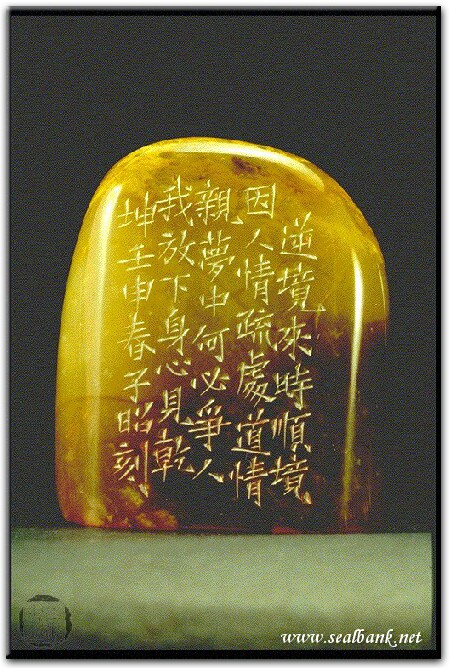 逆境來時順境
因人情疏處道情
親夢中何必爭人
我放下身心見乾
坤壬申春子昭刻
www.sealbank.net